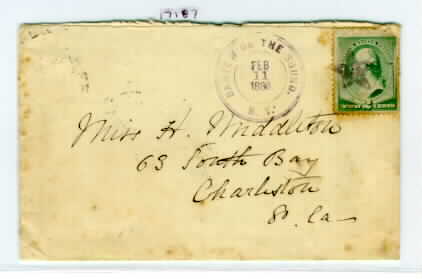 17187
ON THE SOUND.
FEB
11
N. Y.
Miss H. Middleton
63 South Bay
Charleston
So. Ca